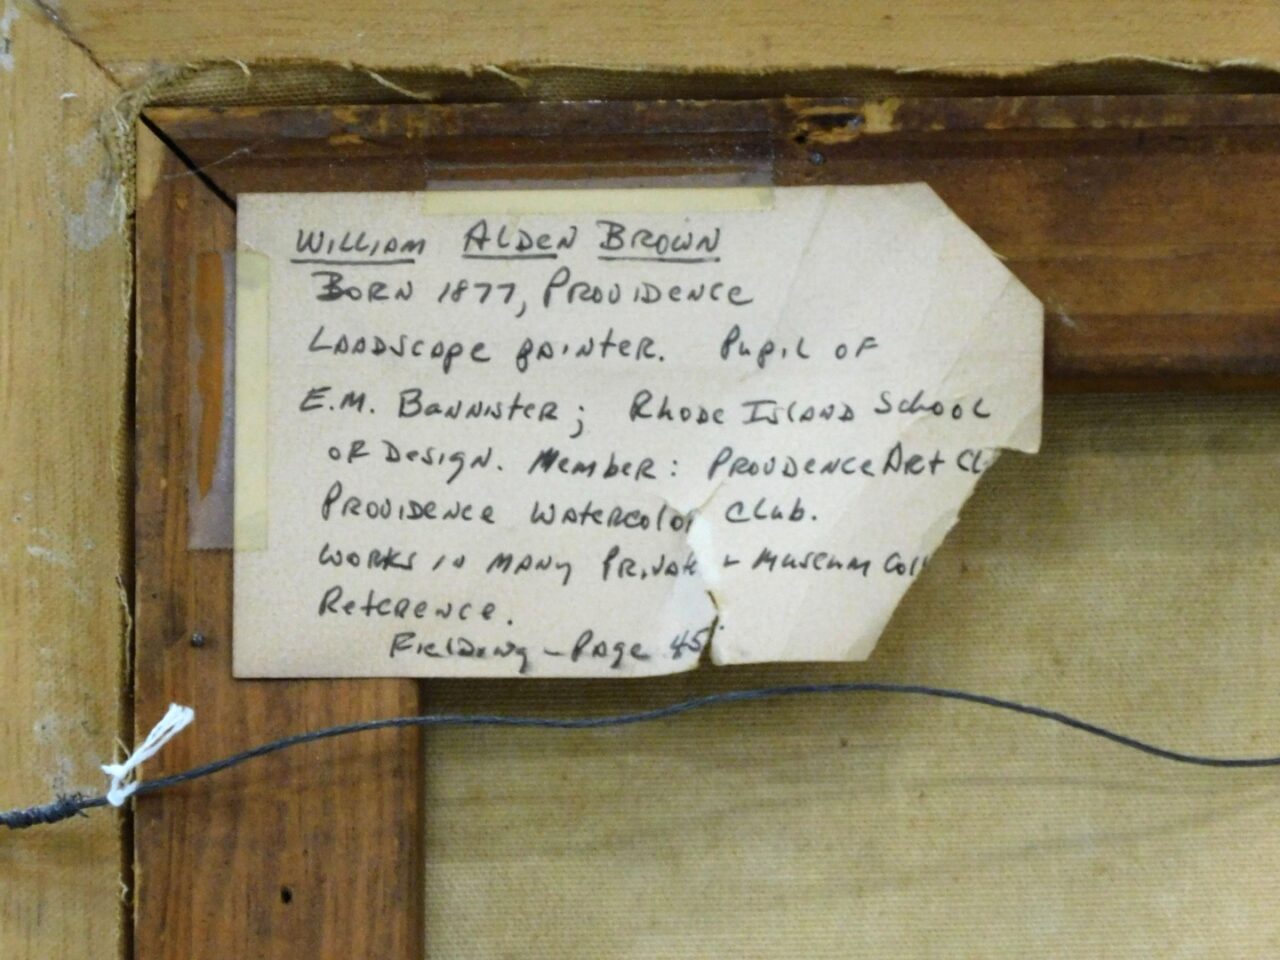 WILLIAM ALDEN BROWN
BORN 1877, PROVIDENCE
LANDSCAPE PAINTER. PUPIL OF
E.M. BANNISTER; RHODE ISLAND SCHOOL
OF DESIGN. MEMBER: PROVIDENCE ART CL
PROVIDENCE WATERCOLOR CLUB.
WORKS IN MANY PRIVATE + MUSEUM COLL
REFERENCE.
FIELDING - PAGE 45